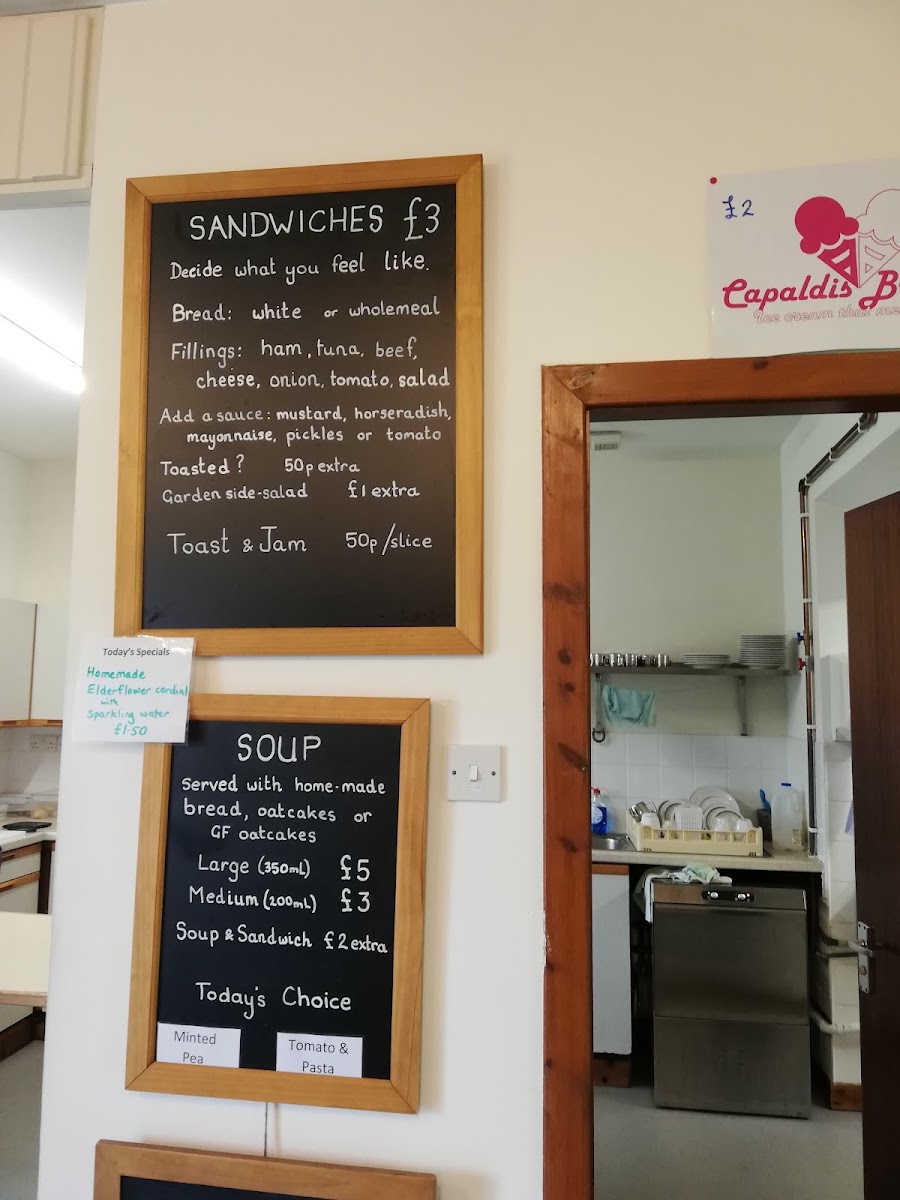 SANDWICHES £3
Decide what you feel like.
Bread: white or wholemeal
Fillings: ham, tuna, beef,
cheese, onion, tomato, salad
Add a sauce: mustard, horseradish,
mayonnaise, pickles or tomato
Toasted? 50p extra
Garden side-salad £1 extra
Toast & Jam 50p/slice
Today's Specials
Homemade
Elderflower cordial
with
Sparkling water
£1.50
SOUP
Served with home-made
bread, oatcakes or
GF oatcakes
Large (350ml) £5
Medium (200mL) £3
Soup & Sandwich £2 extra
Today's Choice
Minted
Pea
Tomato &
Pasta
£2
Capaldis
Ice cream that